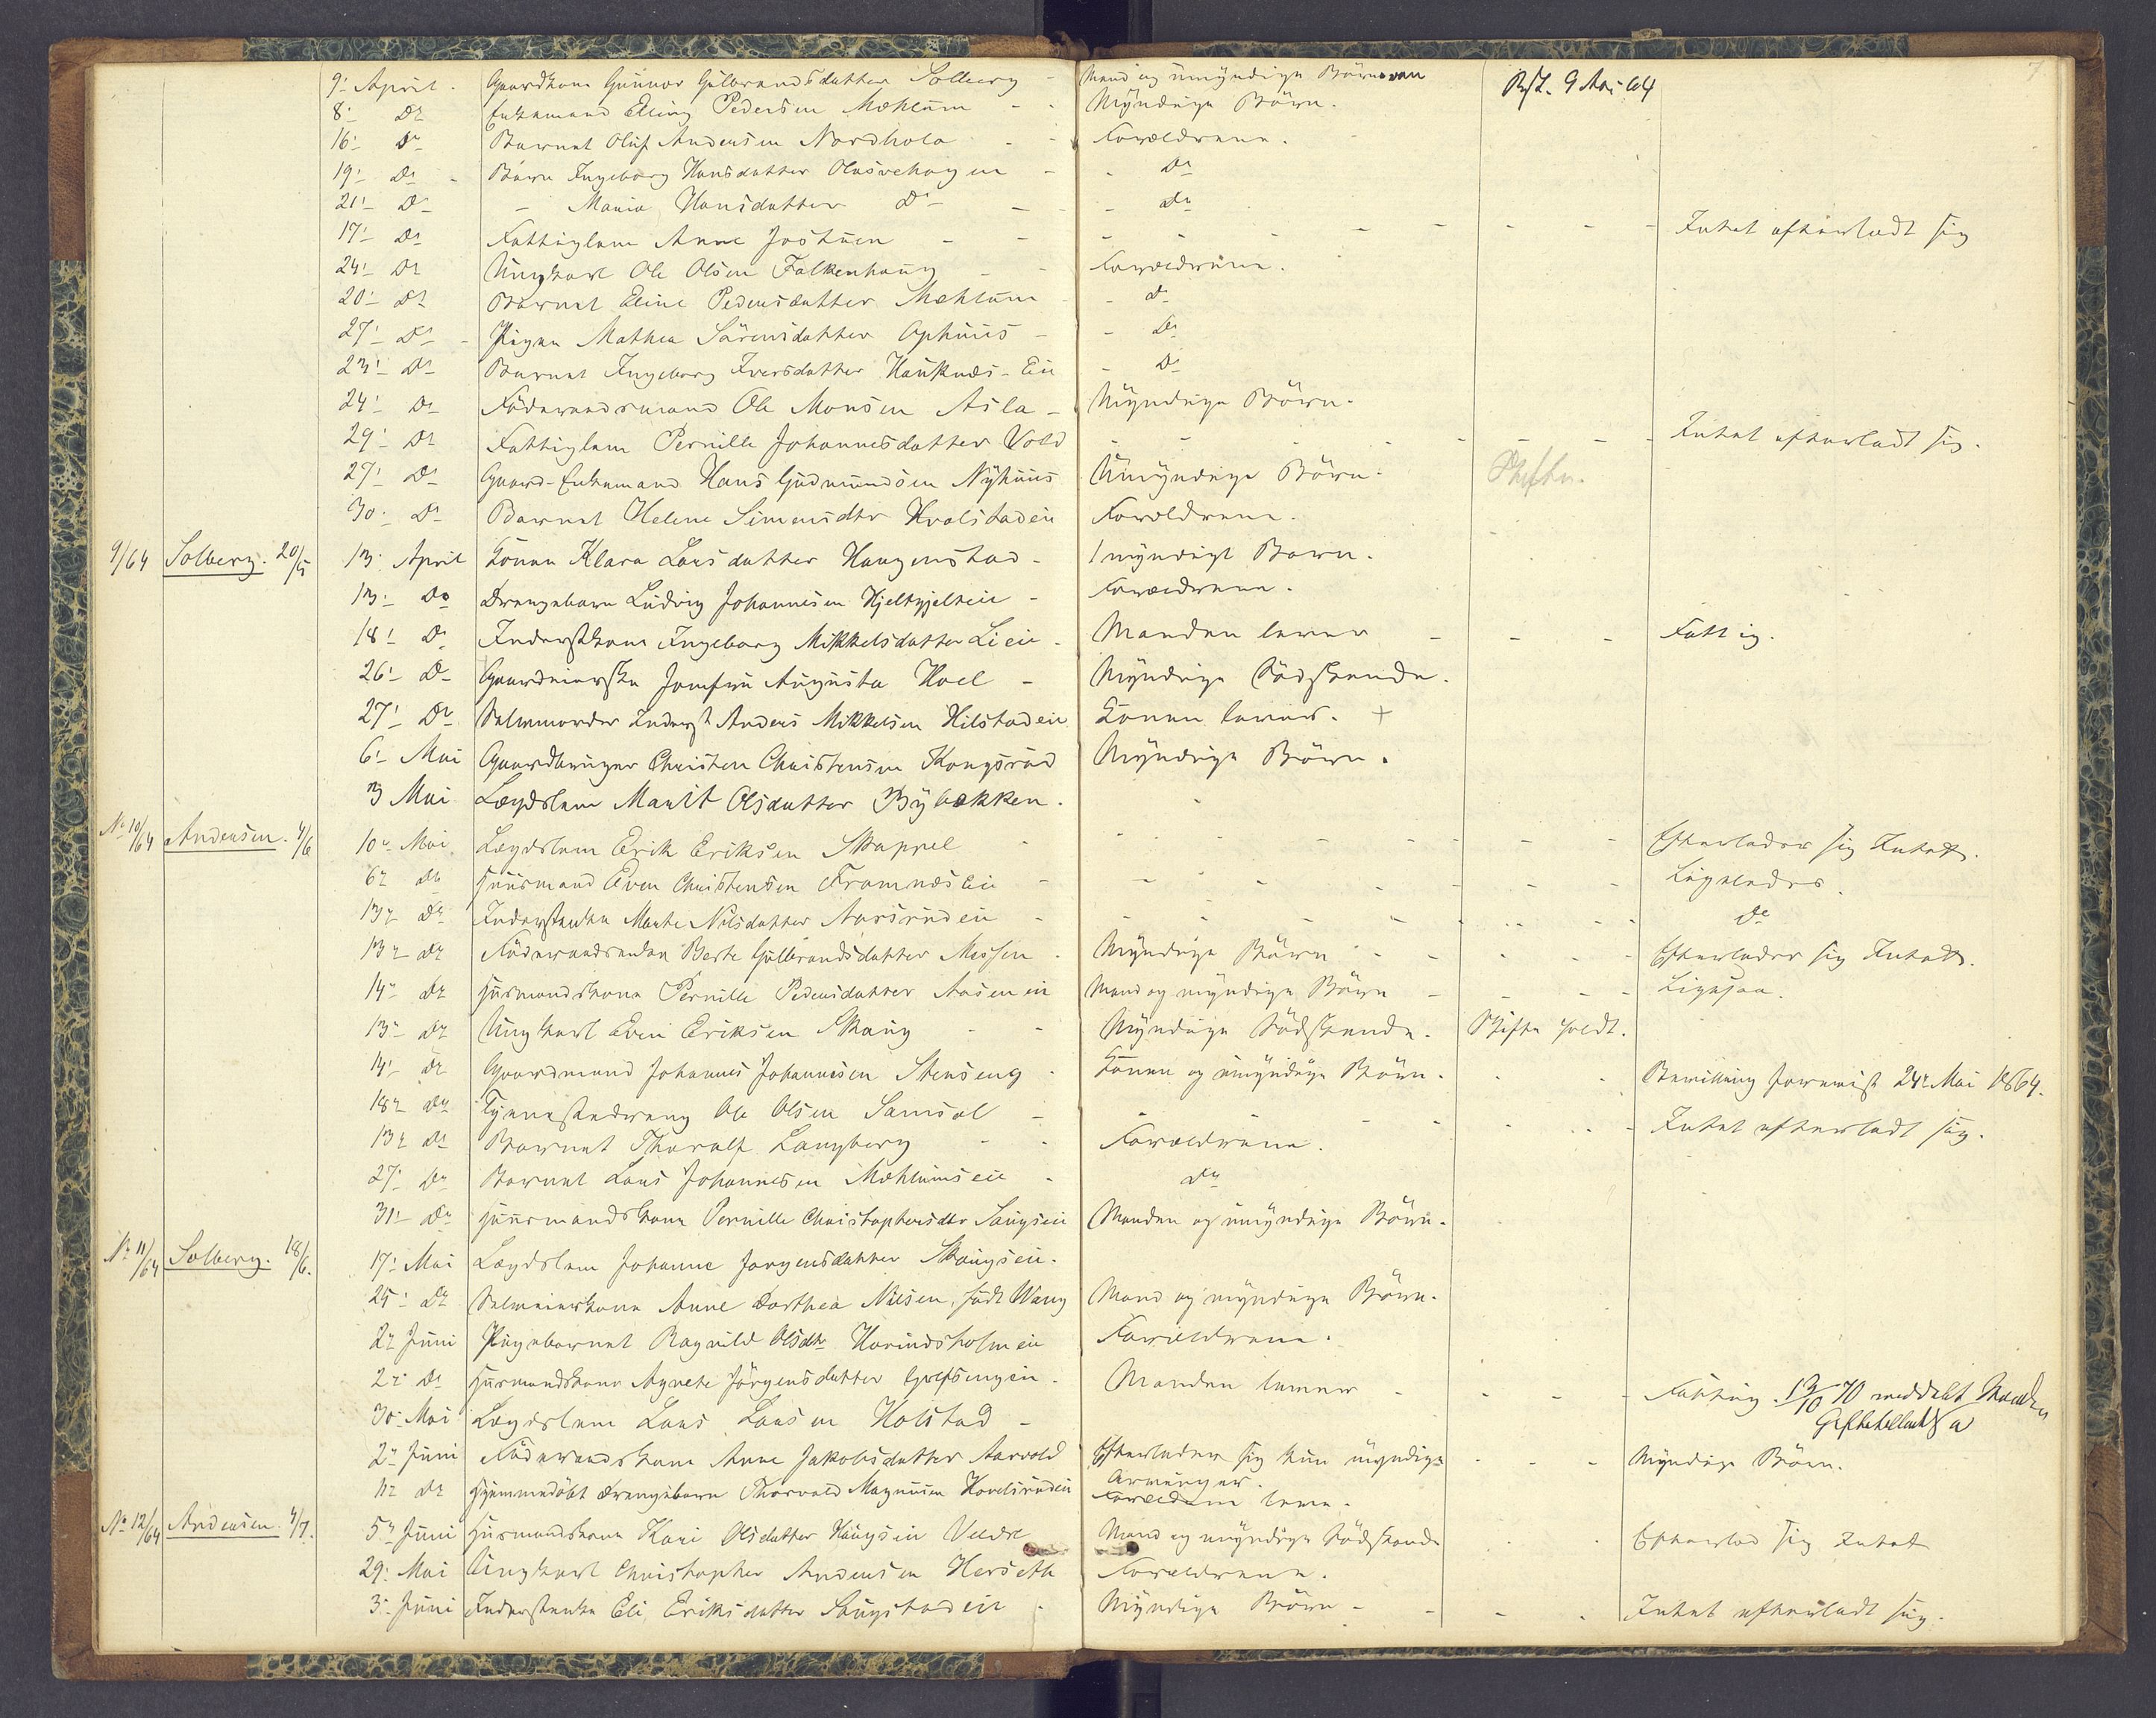 7
9' April. Gaardkone Gunnor Gulbrandsdatter Solberg - Mand og umyndige Børn Reft. 9 Mai 64
8' Do Enkemand Elling Pedersen Mæhlum - - Myndige Børn.
16' Do Barnet Oluf Andersen Nordhola - - Forældrene.
19' Do - Barn Ingeborg Hansdatter Olasvehagen - - Do
21' Do - Maria Hansdatter Do - - Do
17' Do Fattiglem Anne Jostuen - - - - - - - - - - Intet efterladt sig
24' Do Ungkarl Ole Olsen Falkenhaug - - Forældrene.
20' Do Barnet Eline Pedersdatter Mæhlum - - Do
27' Do - Pigen Mathea Sörensdatter Ophuus - - Do
23' Do Barnet Ingeborg Iversdatter Hauknæs-Eie - Do
24' Do Föderaadsmand Ole Monsen Asla - Myndige Børn.
29' Do Fattiglem Pernille Johannesdatter Vold - - - - - - - - Intet efterladt sig.
27' Do Gaard-Enkemand Hans Gudmundsen Nyhuus Umyndige Børn. Skifte.
30' Do Barnet Helene Simensdtr Kvolstadeie Forældrene.
9/64 Solberg. 20/5 13' April Konen Klara Larsdatter Haugenstad - 1 myndigt Barn.
13' Do Drengebarn Ludvig Johannesen Hjeltgjelteie - Forældrene.
18' Do Inderstkone Ingeborg Mikkelsdatter Lieie - Manden lever - - - Fattig.
26' Do Jomfru Augusta Hoel - Myndige Sødskende.
27' Do Inderst Anders Mikkelsen Hilstadeie Konen lever. +
6' Mai Gaardbruger Christen Christensen Kongsrud Myndige Børn.
3 Mai Lægdslem Marit Olsdatter Bybækken. -
No 10/64 Andersen. 4/6 10' Mai. Lægdslem Erik Eriksen Skappel - - - - - - - - Efterlader sig Intet.
6' Do Huusmand Even Christensen Framnæs Eie - - - - - - - - Ligeledes.
13' Do Inderstenke Marte Nilsdatter Aarsrudeie - - - - - - - - Do
13' Do Föderaadsenken Berte Gulbrandsdatter Messen - Myndige Børn - - - - - Efterlader sig Intet.
14' Do Husmandskone Pernille Pedersdatter Aasen eie Mand og myndige Børn - - - - Ligesaa.
13' Do Ungkarl Even Eriksen Skaug - - Myndige Sødskende. Skifte holdt.
14' Do Gaardmand Johannes Johannesen Stenseng - Konen og umyndige Børn. - - Bevilling forevist 24' Mai 1864.
18' Do Tjenestedreng Ole Olsen Samsal - - - - - - - Intet efterladt sig.
13' Do Barnet Thoralf Langberg - - Forældrene.
27' Do Barnet Lars Johannesen Mæhlumseie - Do
31' Do Huusmandskone Pernille Christophersdtr Saugseie Manden og umyndige Børn.
No 11/64 Solberg. 18/6. 17' Mai Lægdslem Johanne Jørgensdatter Skaugseie.
25' Do Anne Dorthea Nilsen, født Wang Mand og myndige Børn.
2' Juni Pigebarnet Ragnild Olsdtr Horindsholmeie Forældrene.
2' Do Husmandskone Agnete Jörgensdatter Grefsengeie - Manden lever - - - - Fattig. 13/10 70 meddelt Manden
30' Mai Lægdslem Lars Larsen Holstad -
2' Juni Föderaadskone Anne Jakobsdatter Aarvold Efterlader sig kun myndige Arvinger. - - - Myndige Børn.
11' Do Hjemmedøbt Drengebarn Thorvald Magnusen Hovelsrudeie Forældrene lever.
No 12/64 Andersen. 4/7. 5' Juni Husmandskone Kari Olsdatter Haugseie Veldre Mand og myndige Sødskende - - Efterlod sig Intet
29' Mai Ungkarl Christopher Andersen Herseth Forældrene.
3' Juni Inderstenke Eli Eriksdatter Saugstadeie - Myndige Børn - - - - Intet efterladt sig.